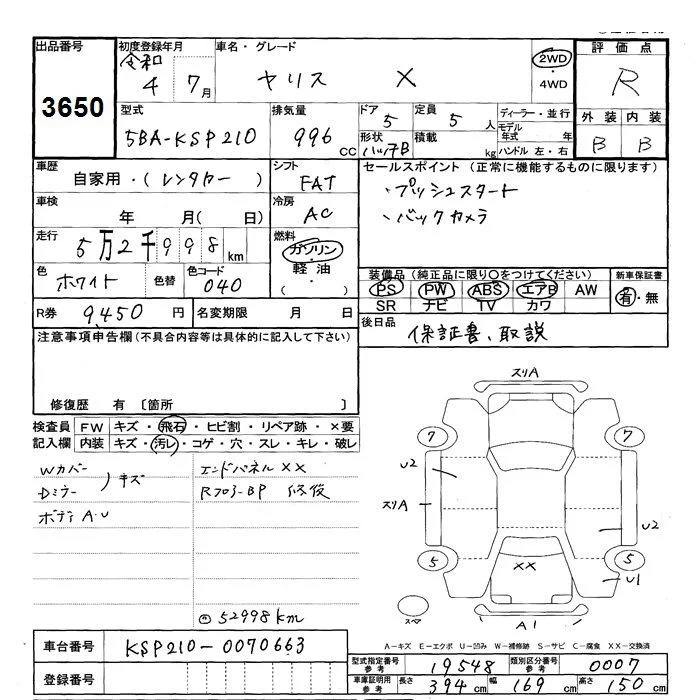 出品番号 初度登録年月 車名・グレード 2WD・4WD 評価点
3650 令和 4年 7月 ヤリス X R
型式 5BA-KSP210 排気量 996 CC ドア 5 定員 5人 ディーラー・並行 外装 内装
形状 ハッチB 積載 kg モデル年式 年 ハンドル 左・右 B B
車歴 自家用・(レンタカー) シフト FAT セールスポイント(正常に機能するものに限ります)
車検 年 月( 日) 冷房 AC ・プッシュスタート
・バックカメラ
走行 5万2千998km 燃料 ガソリン・軽油・( )
色 ホワイト 色替 色コード 040 装備品(純正品に限り○をつけてください) 新車保証書
PS PW ABS エアB AW 有・無
SR ナビ TV カワ
R券 9,450円 名変期限 月 日 後日品 保証書、取説
注意事項申告欄(不具合内容等は具体的に記入して下さい)
修復歴 有 〔箇所 〕
検査員記入欄 FW キズ・飛石・ヒビ割・リペア跡・×要
内装 キズ・汚レ・コゲ・穴・スレ・キレ・破レ
Wカバー
Dミラー )キズ
ボディA・U
エンドパネル××
Rフロア-BP 修復
52998km
スリA
7 7
U2
スリA
U2
5 5
××
U1
スペア
A1
A-キズ E-エクボ U-凹み W-補修跡 S-サビ C-腐食 XX-交換済
車台番号 KSP210-0070663
登録番号
型式指定番号 参考 19548 類別区分番号 参考 0007
車庫証明用 参考 長さ 394cm 幅 169cm 高さ 150cm